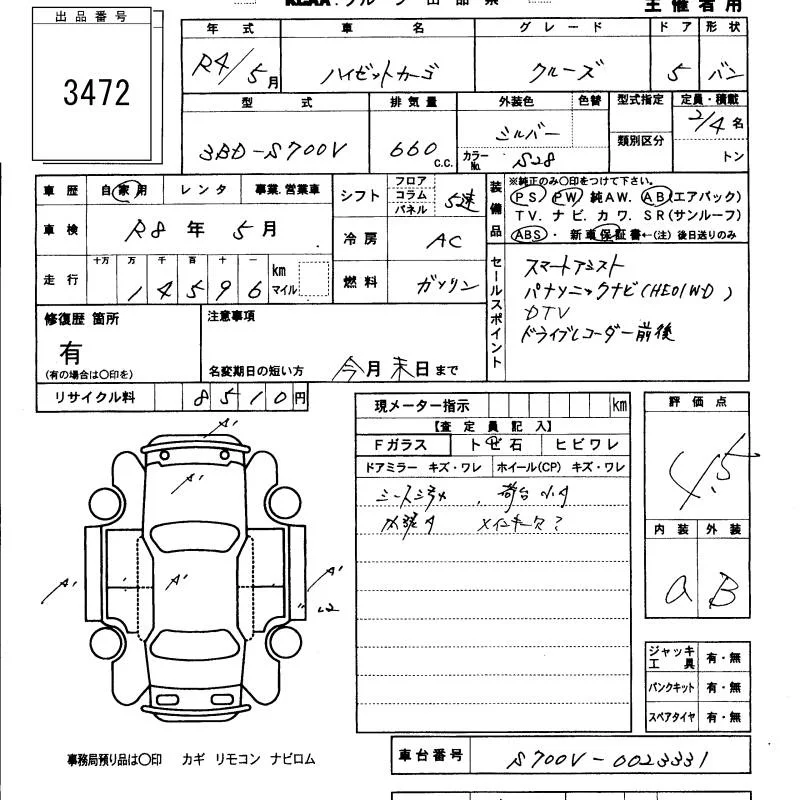 主催者用
出品番号
3472
年式 車名 グレード ドア 形状
R4/5月 ハイゼットカーゴ クルーズ 5 バン
型式 排気量 外装色 色替 型式指定 定員・積載
3BD-S700V 660 c.c. シルバー 2/4名
カラーNo. S28 類別区分 トン
車歴 自家用 レンタ 事業.営業車
車検 R8年5月
走行 十万 万 千 百 十 一
14596 km マイル
シフト フロア コラム パネル 5速
冷房 AC
燃料 ガソリン
装備品
※純正のみ〇印をつけて下さい。
PS PW 純AW. AB(エアバック)
TV. ナビ. カワ. SR(サンルーフ)
ABS・新車保証書←(注)後日送りのみ
セールスポイント
スマートアシスト
パナソニックナビ(HE01WD)
DTV
ドライブレコーダー前後
修復歴 箇所
有
(有の場合は〇印を)
注意事項
名変期日の短い方 今月末日まで
リサイクル料 8510円
現メーター指示 km
【査定員記入】
Fガラス ト ビ 石 ヒビワレ
ドアミラー キズ・ワレ ホイール(CP) キズ・ワレ
荷台小A
メインキー欠?
評価点
4.5
内装 外装
a B
ジャッキ工具 有・無
パンクキット 有・無
スペアタイヤ 有・無
A'
A'
A'
A'
A'
事務局預り品は〇印 カギ リモコン ナビロム
車台番号 S700V-0023331